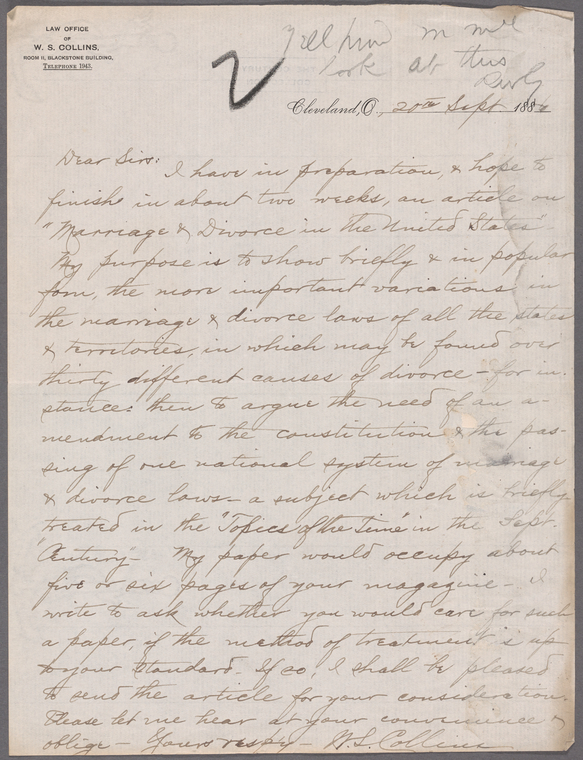 LAW OFFICE
OF
W. S. COLLINS,
ROOM 11, BLACKSTONE BUILDING,
TELEPHONE 1943.
Tell him
look at this
2
Cleveland, O., 20th Sept. 188
Dear Sirs:
I have in preparation, & hope to
finish in about two weeks, an article on
"Marriage & Divorce in the United States"
My purpose is to show briefly & in popular
form, the more important variations in
the marriage & divorce laws of all the states
& territories, in which may be found over
thirty different causes of divorce - for in-
stance: then to argue the need of an a-
mendment to the constitution & the pas-
sing of one national system of marriage
& divorce laws - a subject which is briefly
treated in the "Topics of the Time" in the Sept.
"Century" My paper would occupy about
five or six pages of your magazine - I
write to ask whether you would care for such
a paper, if the method of treatment is up
to your standard. If so, I shall be pleased
to send the article for your consideration.
Please let me hear at your convenience &
oblige - Yours respy - W. S. Collins